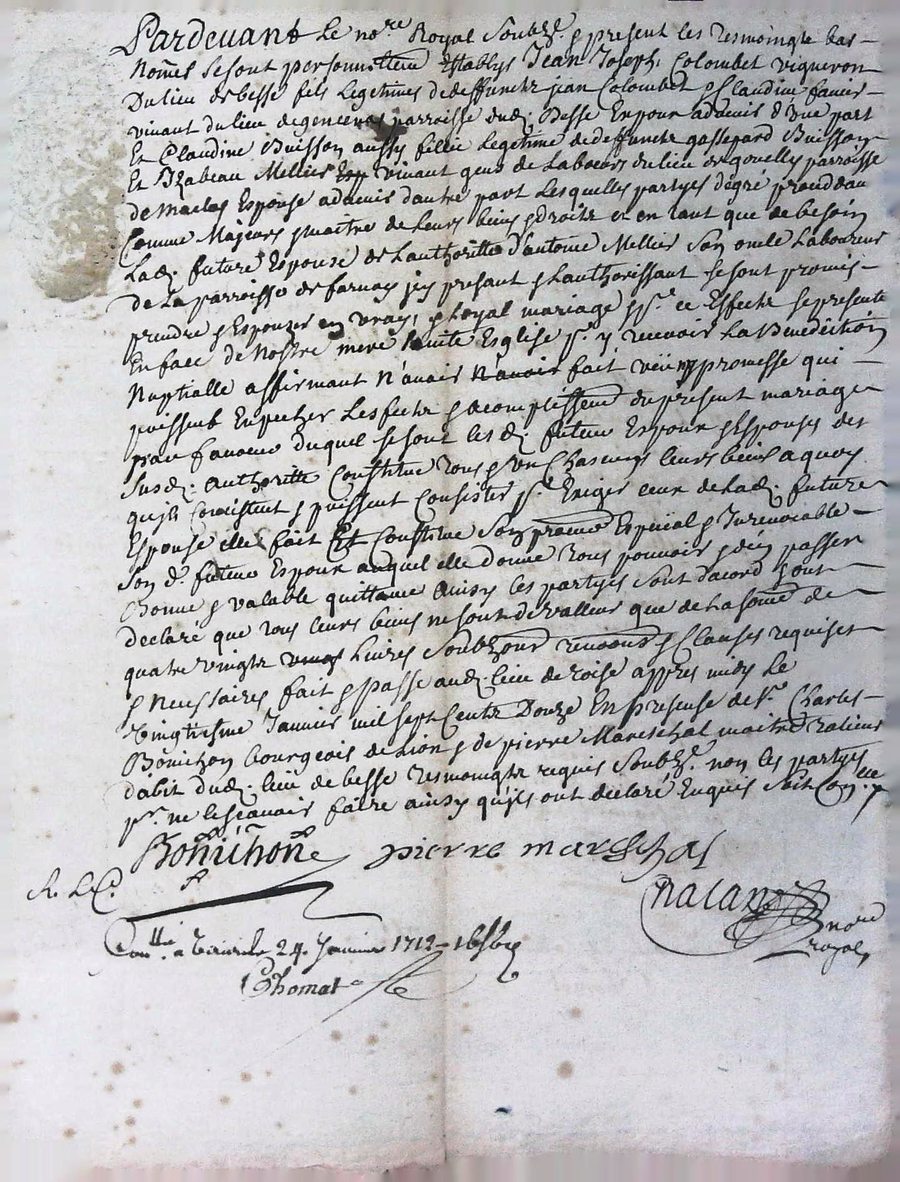 Pardevant le no.re Royal Soubz.é & present les tesmoingts bas
Nom̃es se sont personnellem̃ Establys Jean Joseph Colombet vigneron
Du lieu de besse fils Legetimes de deffuncts jean Colombet & Claudine faure
vivant du lieu de parroisse dud. Besse Espoux advenir d'Une part
Et Claudine Buisson aussy fillie Legetime de deffuncts gassepard Buisson
Et Izabeau Mellier vivant gens de Labeurs du lieu de parroisse
de Maclas Espouse advenir d'autre part Lesquelles partyes de gré
Comme Majeurs & maitre de Leurs biens & droits et en tant que de besoin
Lad. future Espouse de L'authoritté d'antoine Mellier Son oncle Laboureur
de La parroisse de farnay icy presant & L'authorissant se sont promis
prendre & Espouzer en vray, & Loyal mariage & p.r ce Effectz se presente
En face de Nostre mere Ste Esglise p.r y recevoir La Benediction
Nuptialle affirmant N'avoir N'avoir fait promesse qui
puissent Enpecher Les fects & acomplissem̃ du present mariage
faveur duquel se sont les d. futeur Espoux & Espouses de
Susd. authoritté Constitue tous & Un Chascungs leurs biens a quoy
qu'jls Concistent & puissent Consister p.r Exiger ceux de Lad. future
Espouse elle fait Et Constitue Son procure Espécial & Jrrevocable
Son d. futeur Espoux auquel elle donne Tous pouvoir passer
Bonne & valable quittance Ainsy les partyes Sont d'acord & ont
declaré que tous leurs biens ne sont de valleur que de La som̃e de
quatre vingts Livres Soubz & Clauses requises
& Nessaires fait & passé aud. lieu de apprès midy Le
Vingtiesme Janvier mil sept Cents Douze En presense de S.r Charles
Bonichon bourgeois de Lion & de pierre Mareschal maitre
d'abit dud. lieu de besse Tesmoingts requis Soubz.é non les partyes
p.r ne le scavoir faire ainsy qu'jls ont declaré Enquis
Bonnichon pierre mareschal
Chalan
no.re
royal
Con.llé a 24 Janvier 1712
Thomas